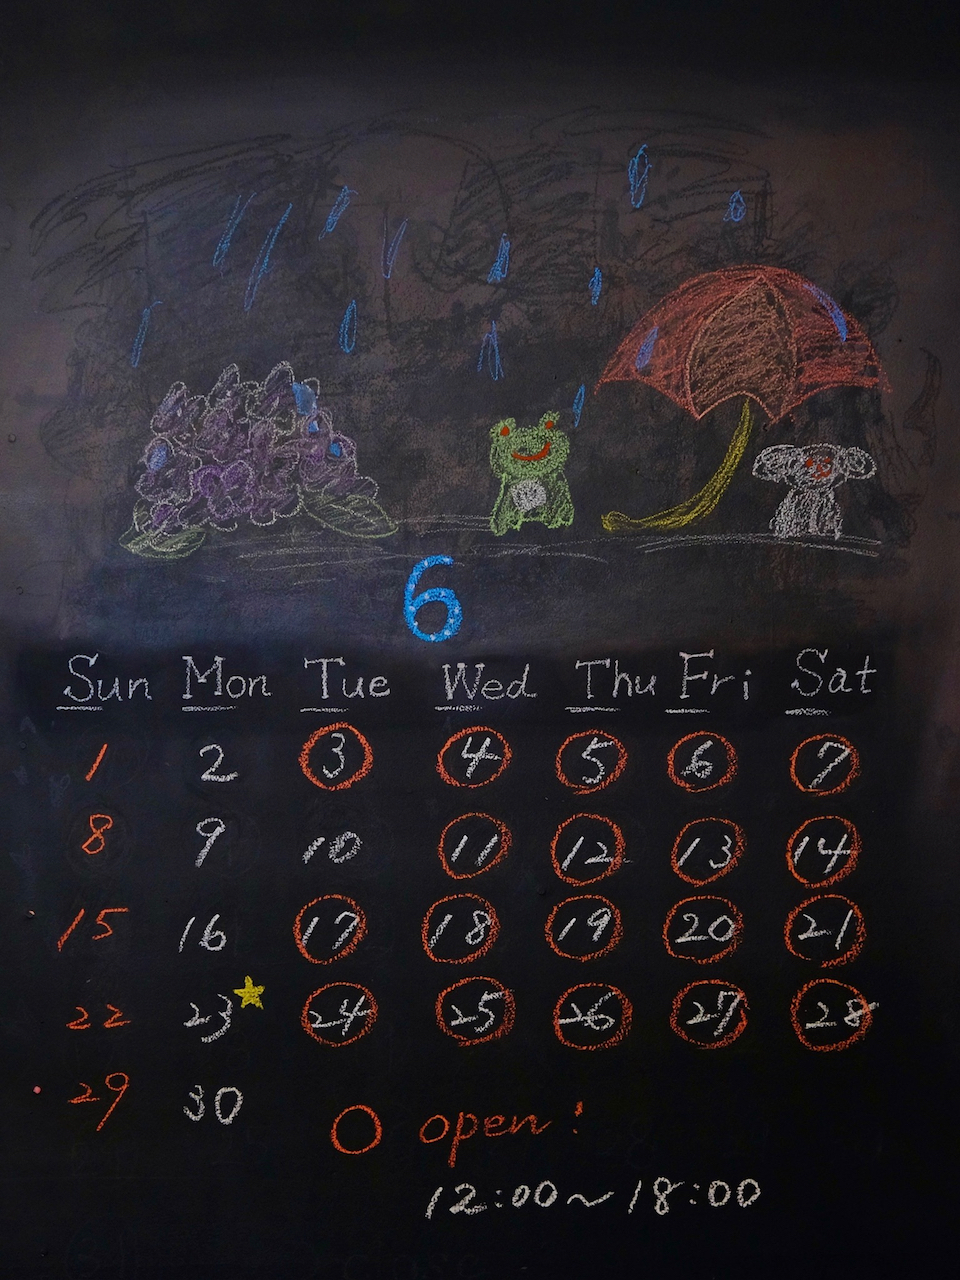 6
Sun Mon Tue Wed Thu Fri Sat
1 2 3 4 5 6 7
8 9 10 11 12 13 14
15 16 17 18 19 20 21
22 23 24 25 26 27 28
29 30
open!
12:00~18:00